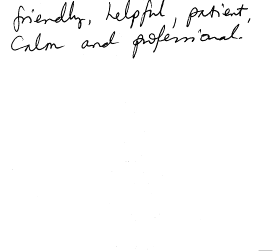 friendly, helpful, patient,
Calm and professional.